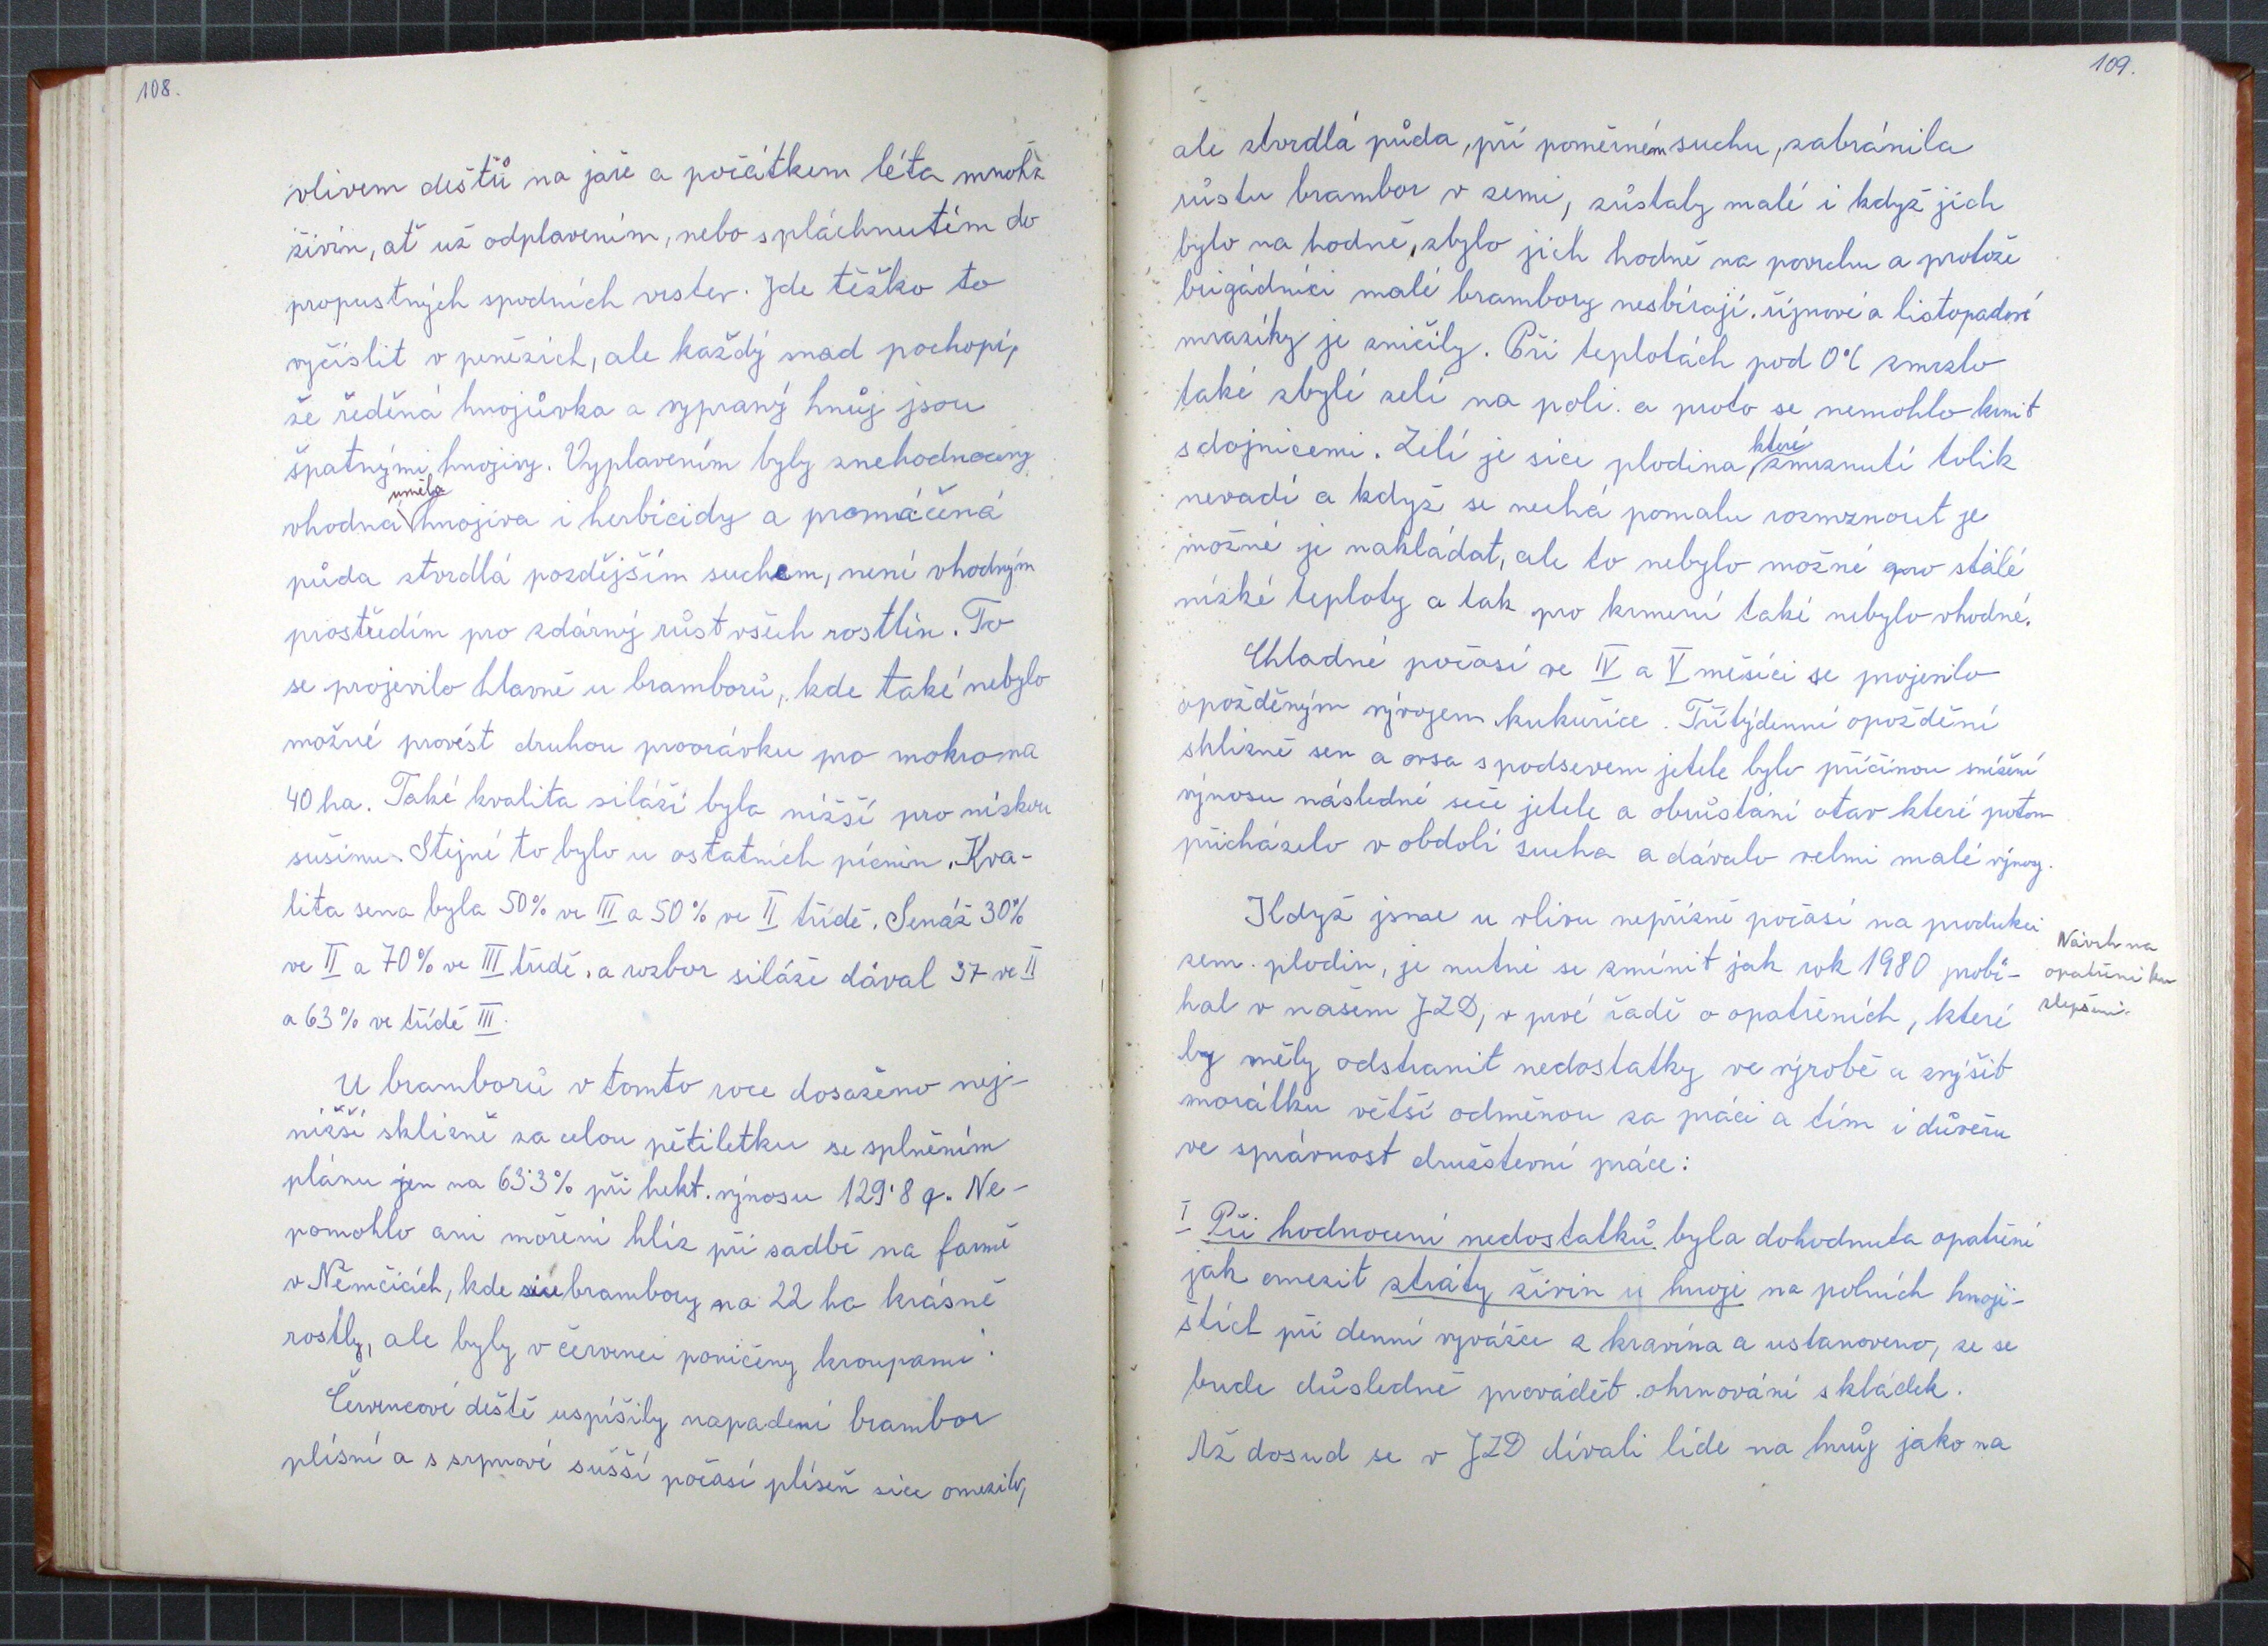 108.
vlivem deštů na jaře a počátkem léta mnoho
živin, ať už odplavením, nebo spláchnutím do
propustných spodních vrstev. Jde těžko to
vyčíslit v penězích, ale každý snad pochopí,
že ředěná hnojůvka a vypraný hnůj jsou
špatnými hnojivy. Vyplavením byly znehodnoceny
umělá
vhodná hnojiva i herbicidy a promáčená
půda ztvrdlá pozdějším suchem, není vhodným
prostředím pro zdárný růst všech rostlin. To
se projevilo hlavně u bramborů, kde také nebylo
možné provést druhou proorávku pro mokro na
40 ha. Také kvalita siláží byla nižší pro nízkou
sušinu. Stejné to bylo u ostatních pícnin. Kva-
lita sena byla 50% ve III a 50% ve II třídě. Senáž 30%
ve II a 70% ve III třídě. a rozbor siláže dával 37 ve II
a 63% ve třídě III.
U bramborů v tomto roce dosaženo nej-
nižší sklizně za celou pětiletku se splněním
plánu jen na 63'3% při hekt. výnosu 129'8 q. Ne-
pomohlo ani moření hlíz při sadbě na farmě
v Němčicích, kde sice brambory na 22 ha krásně
rostly, ale byly v červenci poničeny kroupami.
Červencové deště uspíšily napadení brambor
plísní a s srpnové sušší počasí plíseň sice omezilo,
109.
ale ztvrdlá půda, při poměrném suchu, zabránila
růstu brambor v zemi, zůstaly malé i když jich
bylo na hodně, zbylo jich hodně na povrchu a protože
brigádníci malé brambory nesbírají. říjnové a listopadové
mrazíky je zničily. Při teplotách pod 0°C zmrzlo
také zbylé zelí na poli. a proto se nemohlo krmit
s dojnicemi. Zelí je sice plodina, zmrznutí tolik
které
nevadí a když se nechá pomalu rozmrznout je
možné je nakládat, ale to nebylo možné pro stálé
nízké teploty a tak pro krmení také nebylo vhodné.
Chladné počasí ve IV a V měsíci se projevilo
opožděným vývojem kukuřice. Třítýdenní opoždění
sklizně sen a ovsa s podsevem jetele bylo příčinou snížení
výnosu následné seče jetele a obrůstání otav které potom
přicházelo v období sucha a dávalo velmi malé výnosy.
Když jsme u vlivu nepřízně počasí na produkci
zem. plodin, je nutné se zmínit jak rok 1980 probí-
hal v našem JZD, v prvé řadě o opatřeních, které
by měly odstranit nedostatky ve výrobě a zvýšit
morálku větší odměnou za práci a tím i důvěru
ve správnost družstevní práce:
Návrh na
opatření ke
zlepšení.
I Při hodnocení nedostatků byla dohodnuta opatření
jak omezit ztráty živin u hnoje na polních hnoji-
štích při denní vyvážce z kravína a ustanoveno, že se
bude důsledně provádět ohrnování skládek.
Až dosud se v JZD dívali lidé na hnůj jako na